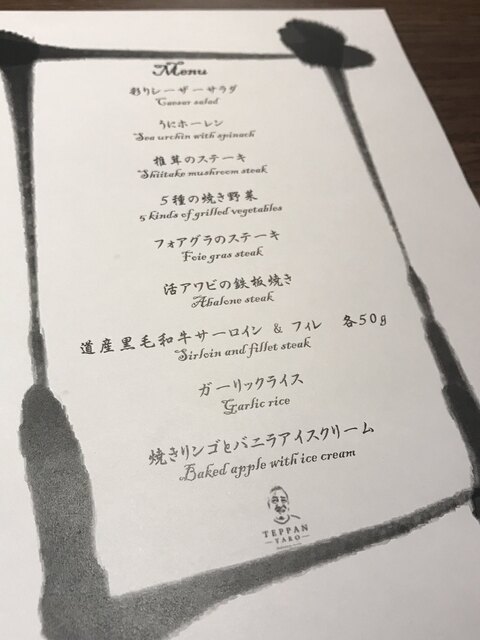 Menu
彩りシーザーサラダ
Caesar salad
うにホーレン
Sea urchin with spinach
椎茸のステーキ
Shiitake mushroom steak
5種の焼き野菜
5 kinds of grilled vegetables
フォアグラのステーキ
Foie gras steak
活アワビの鉄板焼き
Abalone steak
道産黒毛和牛サーロイン & フィレ 各50g
Sirloin and fillet steak
ガーリックライス
Garlic rice
焼きリンゴとバニラアイスクリーム
Baked apple with ice cream
TEPPAN
YARO